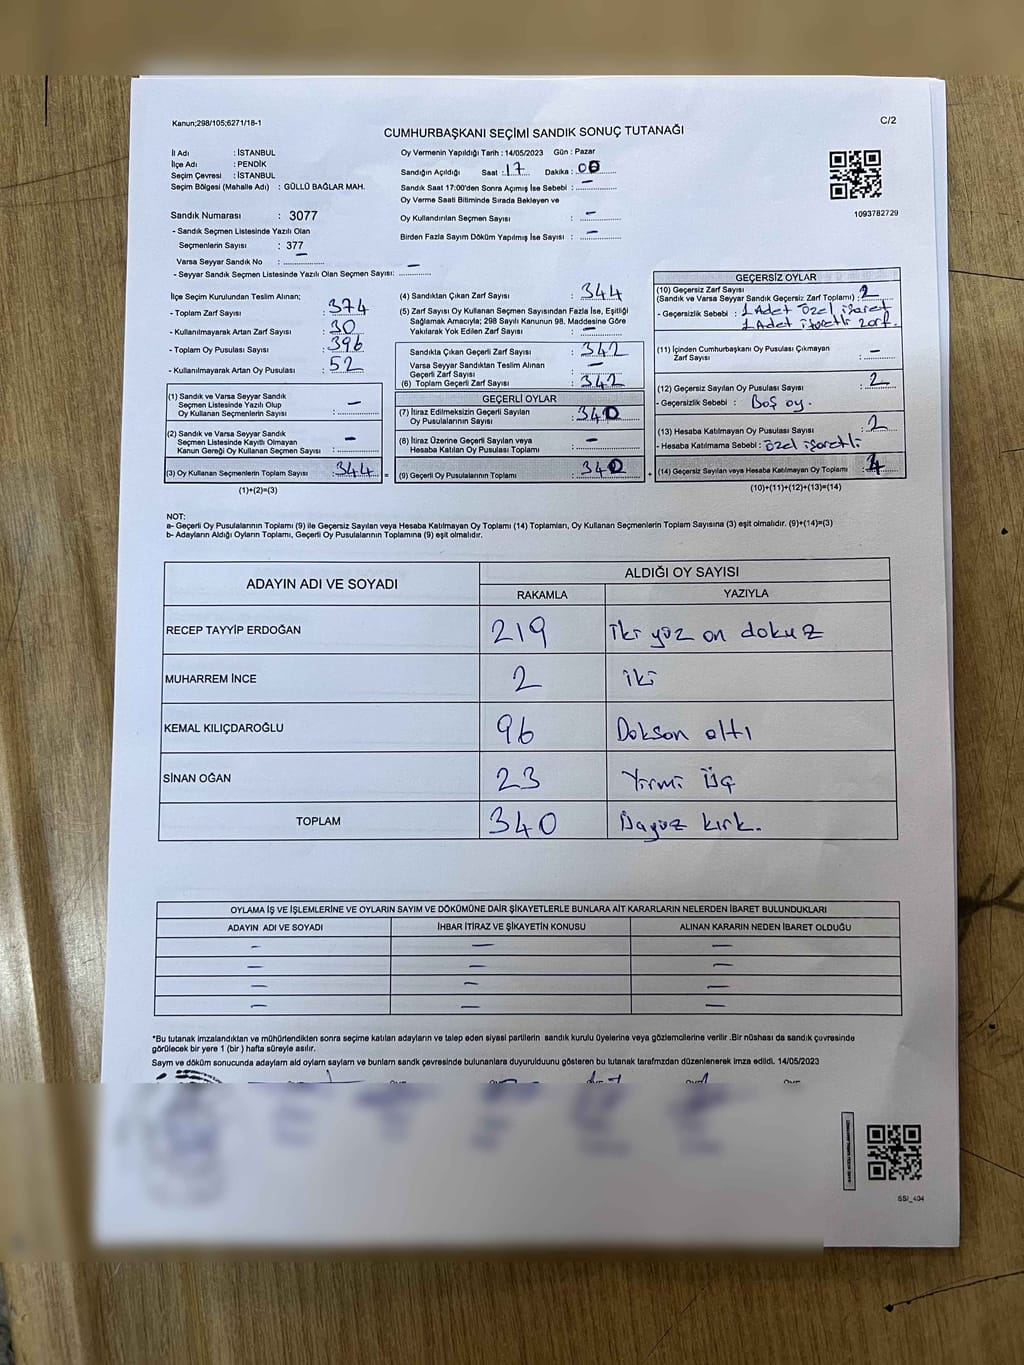 Kanun;298/105;6271/18-1
C/2
CUMHURBAŞKANI SEÇİMİ SANDIK SONUÇ TUTANAĞI
İl Adı : İSTANBUL
İlçe Adı : PENDİK
Seçim Çevresi : İSTANBUL
Seçim Bölgesi (Mahalle Adı) : GÜLLÜ BAĞLAR MAH.
Sandık Numarası : 3077
- Sandık Seçmen Listesinde Yazılı Olan
Seçmenlerin Sayısı : 377
Varsa Seyyar Sandık No : –
- Seyyar Sandık Seçmen Listesinde Yazılı Olan Seçmen Sayısı: –
Oy Vermenin Yapıldığı Tarih : 14/05/2023 Gün : Pazar
Sandığın Açıldığı Saat : 17 Dakika : 00
Sandık Saat 17:00'den Sonra Açılmış İse Sebebi : –
Oy Verme Saati Bitiminde Sırada Bekleyen ve
Oy Kullandırılan Seçmen Sayısı : –
Birden Fazla Sayım Döküm Yapılmış İse Sayısı : –
1093782729
İlçe Seçim Kurulundan Teslim Alınan;
- Toplam Zarf Sayısı : 374
- Kullanılmayarak Artan Zarf Sayısı : 30
- Toplam Oy Pusulası Sayısı : 396
- Kullanılmayarak Artan Oy Pusulası : 52
(1) Sandık ve Varsa Seyyar Sandık
Seçmen Listesinde Yazılı Olup
Oy Kullanan Seçmenlerin Sayısı : –
(2) Sandık ve Varsa Seyyar Sandık
Seçmen Listesinde Kayıtlı Olmayan
Kanun Gereği Oy Kullanan Seçmen Sayısı : –
(3) Oy Kullanan Seçmenlerin Toplam Sayısı : 344
(1)+(2)=(3)
=
(4) Sandıktan Çıkan Zarf Sayısı : 344
(5) Zarf Sayısı Oy Kullanan Seçmen Sayısından Fazla İse, Eşitliği
Sağlamak Amacıyla; 298 Sayılı Kanunun 98. Maddesine Göre
Yakılarak Yok Edilen Zarf Sayısı : –
Sandıkta Çıkan Geçerli Zarf Sayısı : 342
Varsa Seyyar Sandıktan Teslim Alınan
Geçerli Zarf Sayısı : –
(6) Toplam Geçerli Zarf Sayısı : 342
GEÇERLİ OYLAR
(7) İtiraz Edilmeksizin Geçerli Sayılan
Oy Pusulalarının Sayısı : 340
(8) İtiraz Üzerine Geçerli Sayılan veya
Hesaba Katılan Oy Pusulası Toplamı : –
(9) Geçerli Oy Pusulalarının Toplamı : 340
+
GEÇERSİZ OYLAR
(10) Geçersiz Zarf Sayısı
(Sandık ve Varsa Seyyar Sandık Geçersiz Zarf Toplamı) : 2
- Geçersizlik Sebebi : 1 Adet özel işaret
1 Adet işaretli zarf.
(11) İçinden Cumhurbaşkanı Oy Pusulası Çıkmayan
Zarf Sayısı : –
(12) Geçersiz Sayılan Oy Pusulası Sayısı : 2
- Geçersizlik Sebebi : Boş oy.
(13) Hesaba Katılmayan Oy Pusulası Sayısı : 2
- Hesaba Katılmama Sebebi : özel işaretli
(14) Geçersiz Sayılan veya Hesaba Katılmayan Oy Toplamı : 4
(10)+(11)+(12)+(13)=(14)
NOT:
a- Geçerli Oy Pusulalarının Toplamı (9) ile Geçersiz Sayılan veya Hesaba Katılmayan Oy Toplamı (14) Toplamları, Oy Kullanan Seçmenlerin Toplam Sayısına (3) eşit olmalıdır. (9)+(14)=(3)
b- Adayların Aldığı Oyların Toplamı, Geçerli Oy Pusulalarının Toplamına (9) eşit olmalıdır.
ADAYIN ADI VE SOYADI
ALDIĞI OY SAYISI
RAKAMLA YAZIYLA
RECEP TAYYİP ERDOĞAN 219 iki yüz on dokuz
MUHARREM İNCE 2 iki
KEMAL KILIÇDAROĞLU 96 Doksan altı
SİNAN OĞAN 23 Yirmi üç
TOPLAM 340 Üçyüz kırk.
OYLAMA İŞ VE İŞLEMLERİNE VE OYLARIN SAYIM VE DÖKÜMÜNE DAİR ŞİKAYETLERLE BUNLARA AİT KARARLARIN NELERDEN İBARET BULUNDUKLARI
ADAYIN ADI VE SOYADI İHBAR İTİRAZ VE ŞİKAYETİN KONUSU ALINAN KARARIN NEDEN İBARET OLDUĞU
– – –
– – –
– – –
– – –
*Bu tutanak imzalandıktan ve mühürlendikten sonra seçime katılan adayların ve talep eden siyasi partilerin sandık kurulu üyelerine veya gözlemcilerine verilir .Bir nüshası da sandık çevresinde
görülecek bir yere 1 (bir ) hafta süreyle asılır.
Sayım ve döküm sonucunda adayların ald oyların sayları ve bunların sandık çevresinde bulunanlara duyurulduunu gösteren bu tutanak tarafmzdan düzenlenerek imza edildi. 14/05/2023
SSI_404